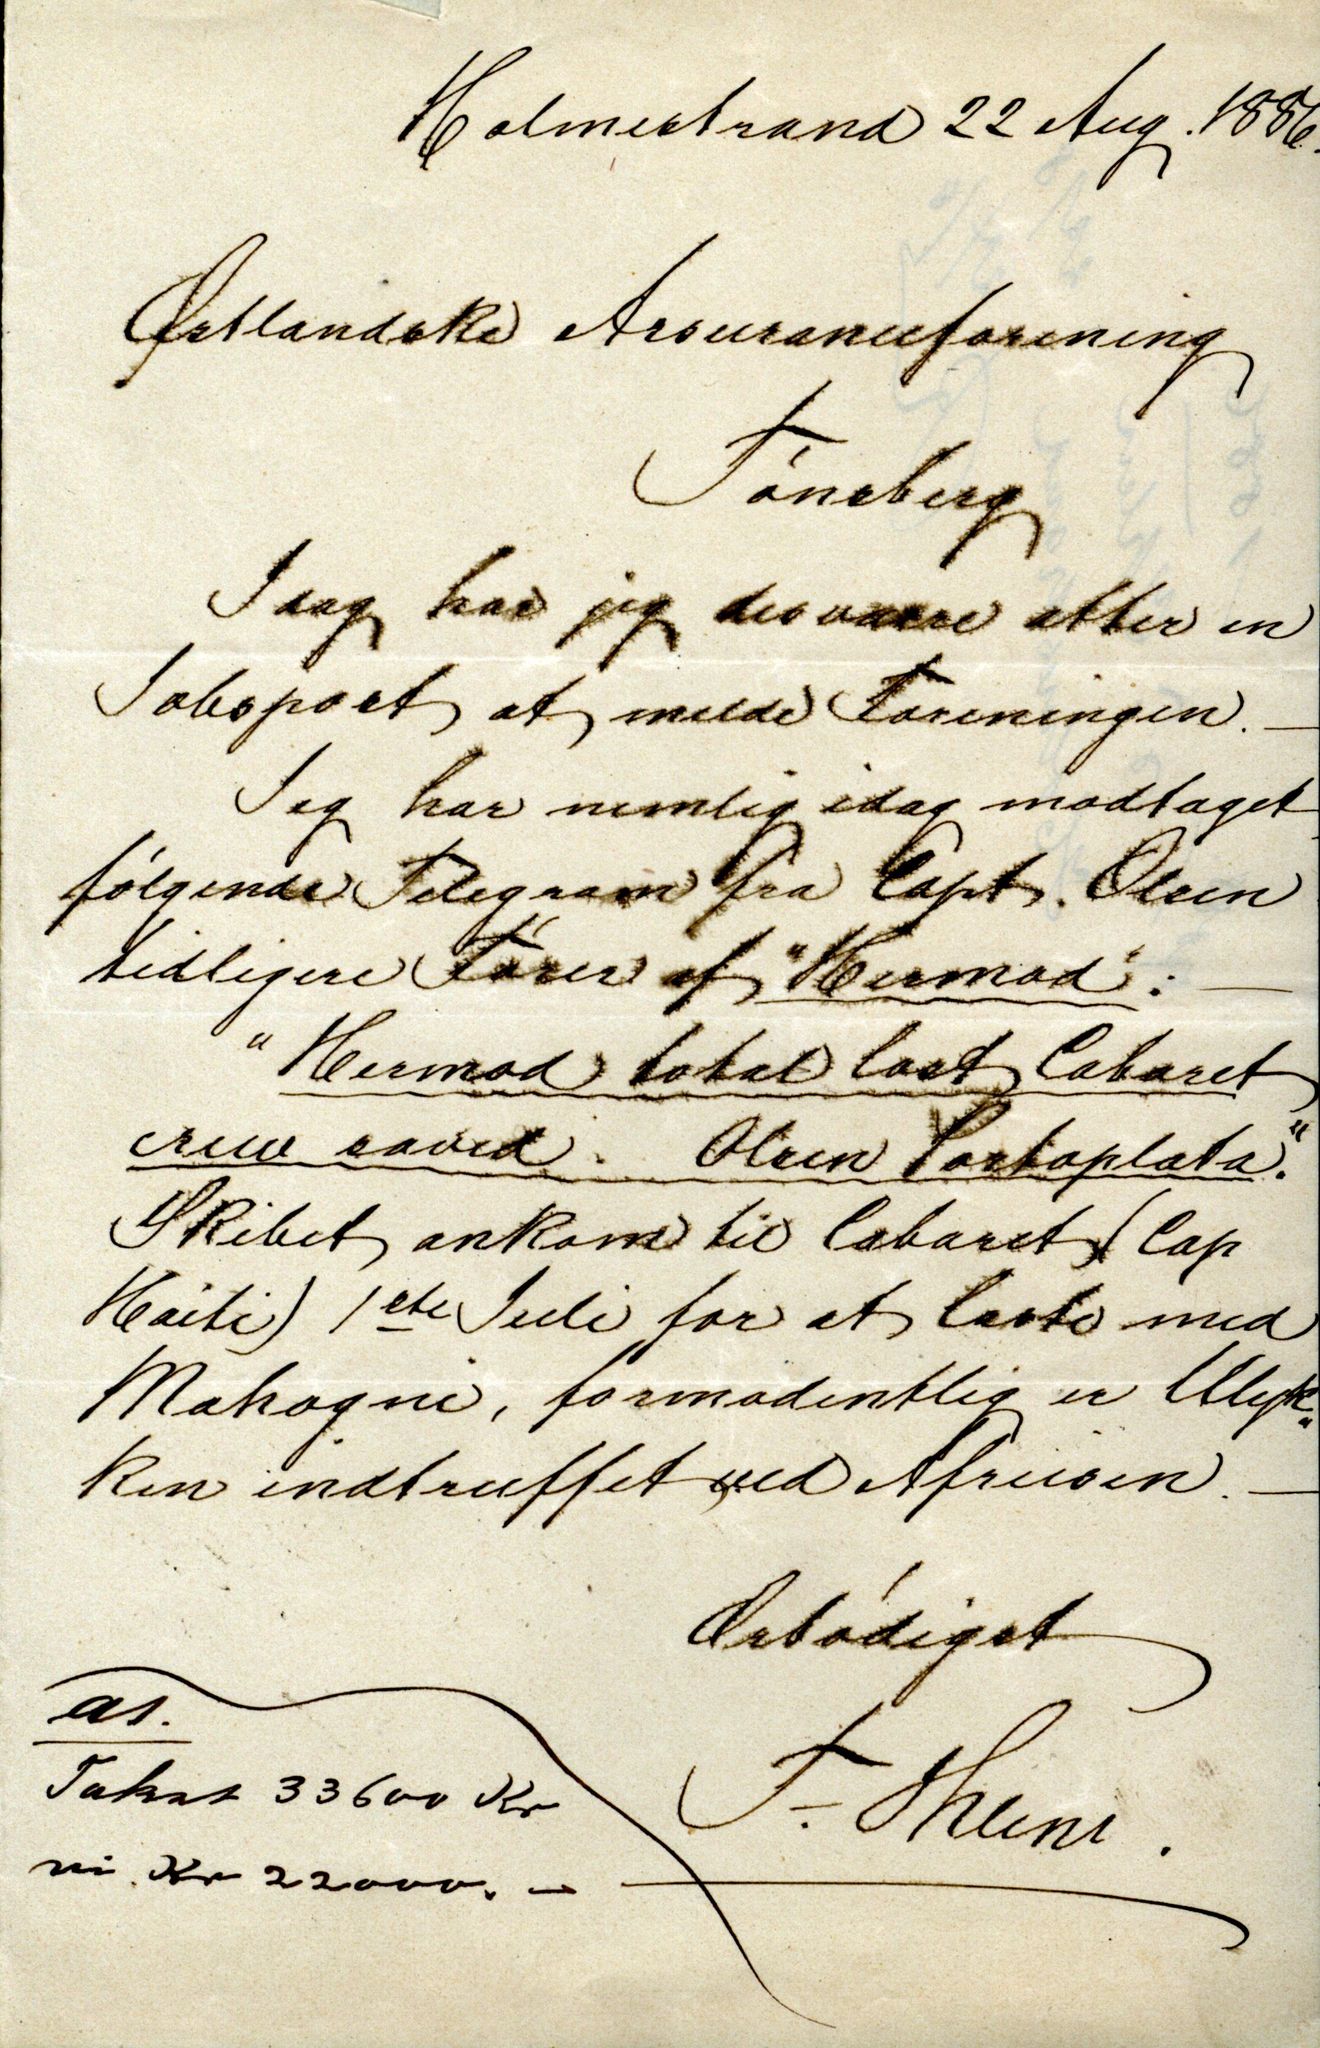 Holmestrand 22 Aug. 1886.
Østlandske Assuranceforening
Tönsberg
Idag har jeg desværre atter en
Jobspost at melde Foreningen. —
Jeg har nemlig idag modtaget
fölgende Telegram fra Capt. Olsen
tidligere Förer af "Hermod": —
"Hermod total lost Cabaret
crew saved. Olsen Portoplata."
Skibet ankom til Cabaret (Cap
Haiti) 1ste Juli for at laste med
Mahogni, formodentlig er Ulyk„
ken indtruffet ved Afreisen. —
Ærbödigst
as.
Takst 33600 Kr
vi Kr 22000. —